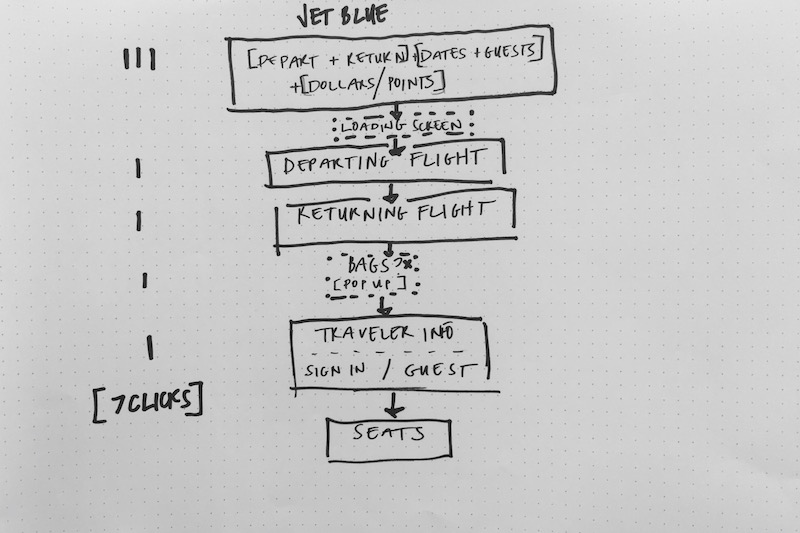 JET BLUE
[DEPART + RETURN]+[DATES + GUESTS]
+[DOLLARS/POINTS]
LOADING SCREEN
DEPARTING FLIGHT
RETURNING FLIGHT
BAGS
[POP UP]
TRAVELER INFO
SIGN IN / GUEST
[7 CLICKS]
SEATS